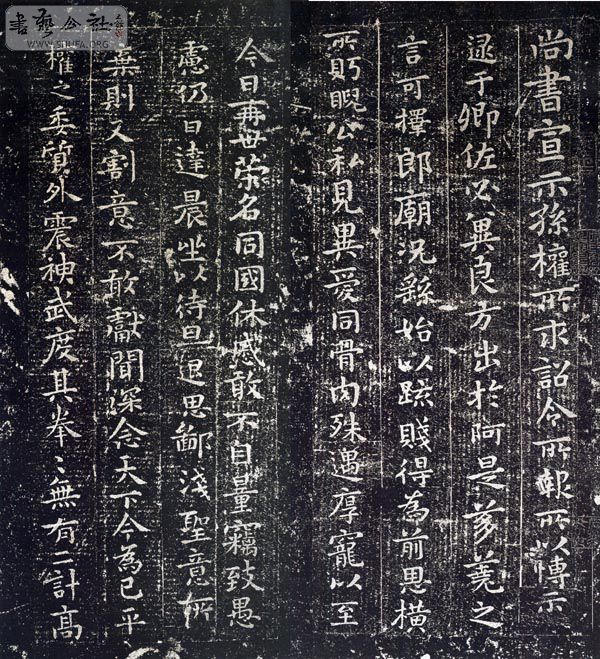 尚書宣示孫權所求詔令所報所以博示
逮于卿佐必冀良方出於阿是芻蕘之
言可擇郎廟況繇始以疏賤得為前恩橫
所眄睨公私見異愛同骨肉殊遇厚寵以至
今日再世榮名同國休慼敢不自量竊致愚
慮仍日達晨坐以待旦退思鄙淺聖意所
棄則又割意不敢獻聞深念天下今為已平
權之委質外震神武度其拳〻無有二計高
書藝公社
WWW.SHUFA.ORG